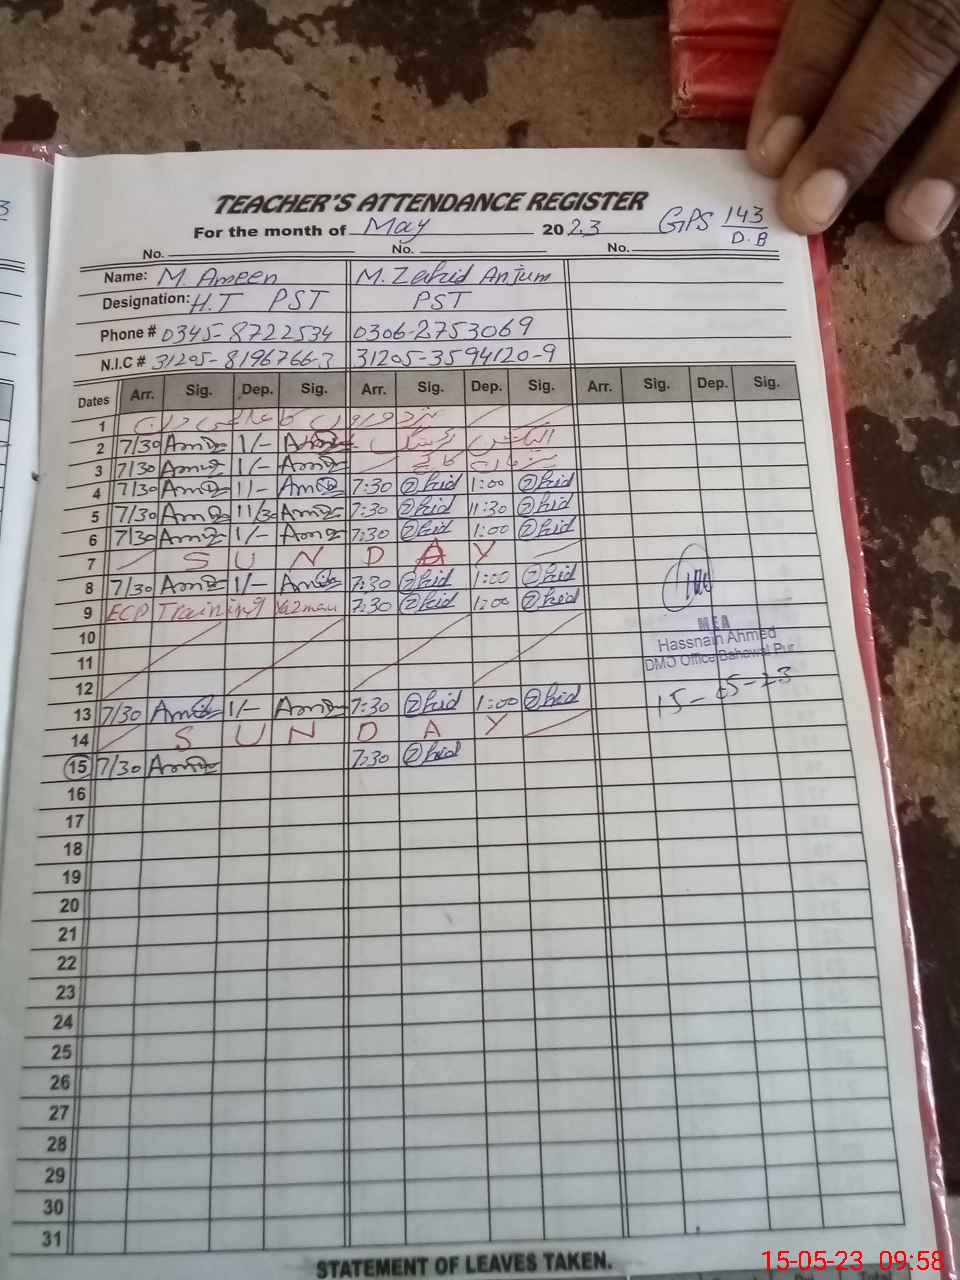 3
TEACHER'S ATTENDANCE REGISTER
For the month of May 2023 GPS 143/D.B
No. No. No.
Name: M. Ameen M. Zahid Anjum
Designation: H.T PST PST
Phone # 0345-8722534 0306-2753069
N.I.C # 31205-8196766-3 31205-3594120-9
Dates Arr. Sig. Dep. Sig. Arr. Sig. Dep. Sig. Arr. Sig. Dep. Sig.
1
2 7/30 1/-
3 7/30 1/-
4 7/30 11- 7:30 Zahid 1:00 Zahid
5 7/30 11/30 7:30 Zahid 11:30 Zahid
6 7/30 1/- 7:30 Zahid 1:00 Zahid
7 SUNDAY
8 7/30 1/- 7:30 Zahid 1:00 Zahid
9 ECP Training Yazman 7:30 Zahid 1:00 Zahid
10
11
12
13 7/30 1/- 7:30 Zahid 1:00 Zahid
14 SUNDAY
15 7/30 7:30 Zahid
MEA
Hassnain Ahmed
DMO Office Bahawal Pur
15-05-23
16
17
18
19
20
21
22
23
24
25
26
27
28
29
30
31
STATEMENT OF LEAVES TAKEN.
15-05-23 09:58